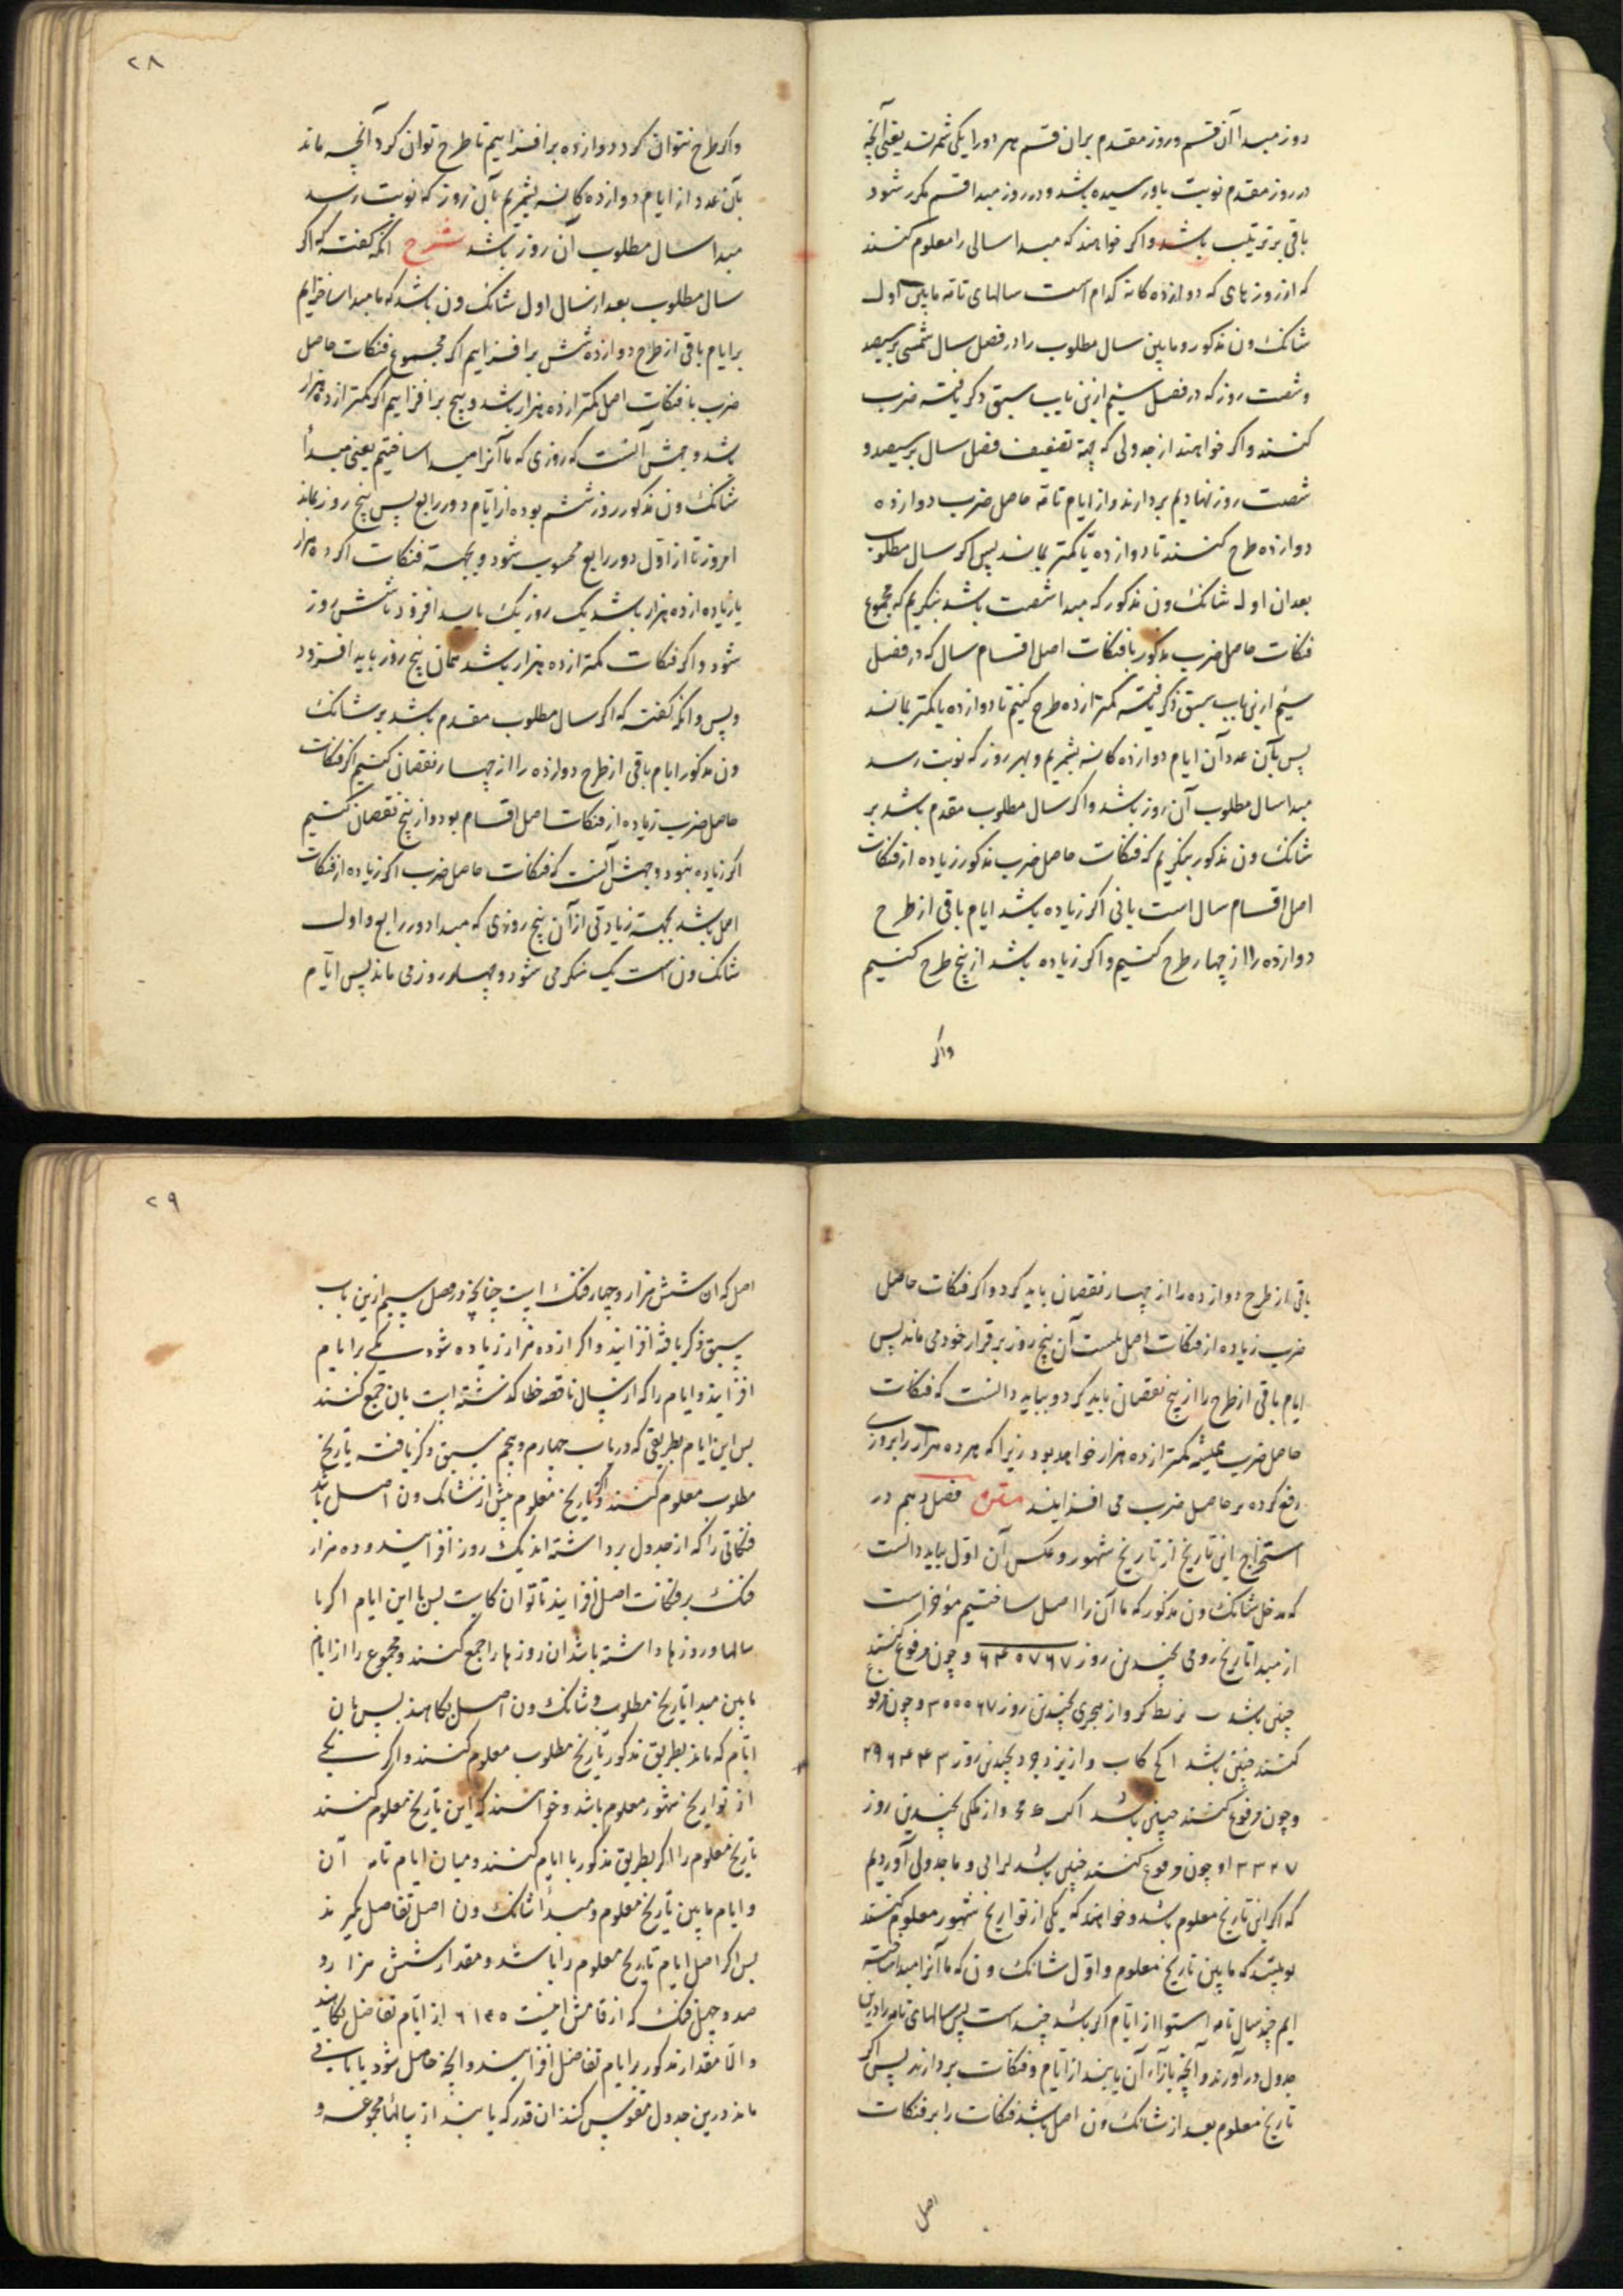 روز مبدا آن قسم و روز مقدم بران قسم هر دو را یکی شمرند یعنی آنچه
در روز مقدم نوبت باو رسیده باشد و در روز مبدا قسم مکرر شود
باقی بر ترتیب باشد و اکر خواهند که مبدا سالی را معلوم کنند
که از روزهای که دوازده کانه کدام است سالهای تامه مابین اول
شانک ون مذکور و مابین سال مطلوب را در فصل سال شمسی بر سیصد
و شصت روز که در فصل سیم ازین باب سبق ذکر یافته ضرب
کنند و اکر خواهند از جدولی که بجهة تضعیف فضل سال بر سیصد و
شصت روز نهادیم بردارند و از ایام تامه حاصل ضرب دوازده
دوازده طرح کنند تا دوازده یا کمتر بماند پس اکر سال مطلوب
بعد ان اول شانک ون مذکور که مبدا شصت باشد بنکریم که مجموع
فنکات حاصل ضرب مذکور با فنکات اصل اقسام سال که در فصل
سیم ازین باب سبق ذکر یافته کمتر از ده طرح کنیم تا دوازده یا کمتر بماند
پس بآن عدد آن ایام دوازده کانه بشمریم و بهر روز که نوبت رسد
مبدا سال مطلوب آن روز باشد و اکر سال مطلوب مقدم باشد بر
شانک ون مذکور بنکریم که فنکات حاصل ضرب مذکور زیاده از فنکات
اصل اقسام سال است یا نی اکر زیاده باشد ایام باقی از طرح
دوازده را از چهار طرح کنیم و اکر زیاده باشد از پنج طرح کنیم
واکر
۲۸
واکر طرح نتوان کرد دوازده برافزاییم تا طرح توان کرد آنچه ماند
بآن عدد از ایام دوازده کانه بشمریم بآن روز که نوبت رسد
مبدا سال مطلوب آن روز باشد شرح انکه کفت که اکر
سال مطلوب بعد از سال اول شانک ون باشد که ما مبدا ساخته ایم
بر ایام باقی از طرح دوازده شش برافزاییم اکر مجموع فنکات حاصل
ضرب با فنکات اصل کمتر از ده هزار باشد و پنج برافزاییم اکر کمتر از ده هزار
باشد وجهش آنست که روزی که ما آنرا مبدا ساختیم یعنی مبدأ
شانک ون مذکور روز ششم بوده از ایام دور رابع پس پنج روز بماند
امروز تا از اول دور رابع محسوب شود و بجهة فنکات اکر ده هزار
یا زیاده از ده هزار باشد یک روز یک باید افزود تا شش روز
شود و اکر فنکات کمتر از ده هزار باشد همان پنج روز باید افزود
و پس وانکه کفت که اکر سال مطلوب مقدم باشد بر شانک
ون مذکور ایام باقی از طرح دوازده را از چهار نقصان کنیم اکر فنکات
حاصل ضرب زیاده از فنکات اصل اقسام بود و از پنج نقصان کنیم
اکر زیاده نبود وجهش آنست که فنکات حاصل ضرب اکر زیاده از فنکات
اصل باشد بجهة زیادتی از آن پنج روزی که مبدا دور رابع و اول
شانک ون است یک منکسر می شود و چهار روز می ماند پس ایام
باقی از طرح دوازده را از چهار نقصان باید کرد و اکر فنکات حاصل
ضرب زیاده از فنکات اصل نیست آن پنج روز برقرار خود می ماند پس
ایام باقی از طرح را از پنج نقصان باید کرد و بباید دانست که فنکات
حاصل ضرب همیشه کمتر از ده هزار خواهد بود زیرا که هر ده هزار را بروزی
رفع کرده بر حاصل ضرب می افزایند متن فصل دهم در
استخراج این تاریخ از تاریخ مشهور و عکس آن اول بباید دانست
که مدخل شانک ون مذکور که ما آن را اصل ساختیم مؤخر است
از مبدا تاریخ رومی بچندین روز ۶۴۵۷۶۷ و چون مرفوع کنند
چنین باشد ب نط کر و از هجری بچندین روز ۳۰۰۰۶۷ و چون مرفوع
کنند چنین باشد ا کح کاب و از یزدجرد بچندین روز ۲۹۶۴۴۳
و چون مرفوع کنند چنین باشد و از ملکی بچندین روز
و چون مرفوع کنند چنین باشد و ما جدولی آوردیم
که اکر این تاریخ معلوم باشد و خواهند که یکی از تواریخ مشهور معلوم کنند
که مابین تاریخ معلوم و اول شانک ون که ما آنرا مبدا ساخته
ایم چند سال تامه است و از ایام اکر باشد چند است پس سالهای تامه را درین
جدول درآورند و آنچه بازاء آن یابند از ایام و فنکات بردارند پس اکر
تاریخ معلوم بعد از شانک ون اصل باشد فنکات را بر فنکات
اصل
۲۹
اصل که ان شش هزار و چهار فنک است چنانچه در فصل سیم ازین باب
سبق ذکر یافته افزایند و اکر از ده هزار زیاده شود یکی بر ایام
افزایند و ایام را که از سال ناقصه خطا کذشته است بان جمع کنند
پس این ایام بطریقی که در باب چهارم و پنجم سبق ذکر یافته تاریخ
مطلوب معلوم کنند و اکر تاریخ معلوم پیش از شانک ون اصل باشد
فنکاتی را که از جدول برداشته اند یک روز افزایند و ده هزار
فنک بر فنکات اصل افزایند تا توان کاست پس با این ایام اکر با
سالها و روزها داشته باشد ان روزها را جمع کنند و مجموع را از ایام
مابین مبدا تاریخ مطلوب و شانک ون اصل بکاهند پس بان
ایام که ماند بطریق مذکور تاریخ مطلوب معلوم کنند و اکر یکی
از تواریخ مشهور معلوم باشد و خواهند که این تاریخ معلوم کنند
تاریخ معلوم را اکر بطریق مذکور با ایام کنند و میان ایام تامه آن
و ایام مابین تاریخ معلوم و مبدأ شانک ون اصل تفاضل کیرند
پس اکر اصل ایام تاریخ معلوم را باشد و مقدار شش هزار و
صد و چهل فنک که ارقامش اینست ۶۱۴۵ از ایام تفاضل بکاهند
و الا مقدار مذکور بر ایام تفاضل افزایند و آنچه حاصل شود یا باقی
ماند درین جدول مقوس کنند ان قدر که یابند از سالها مجموعه و